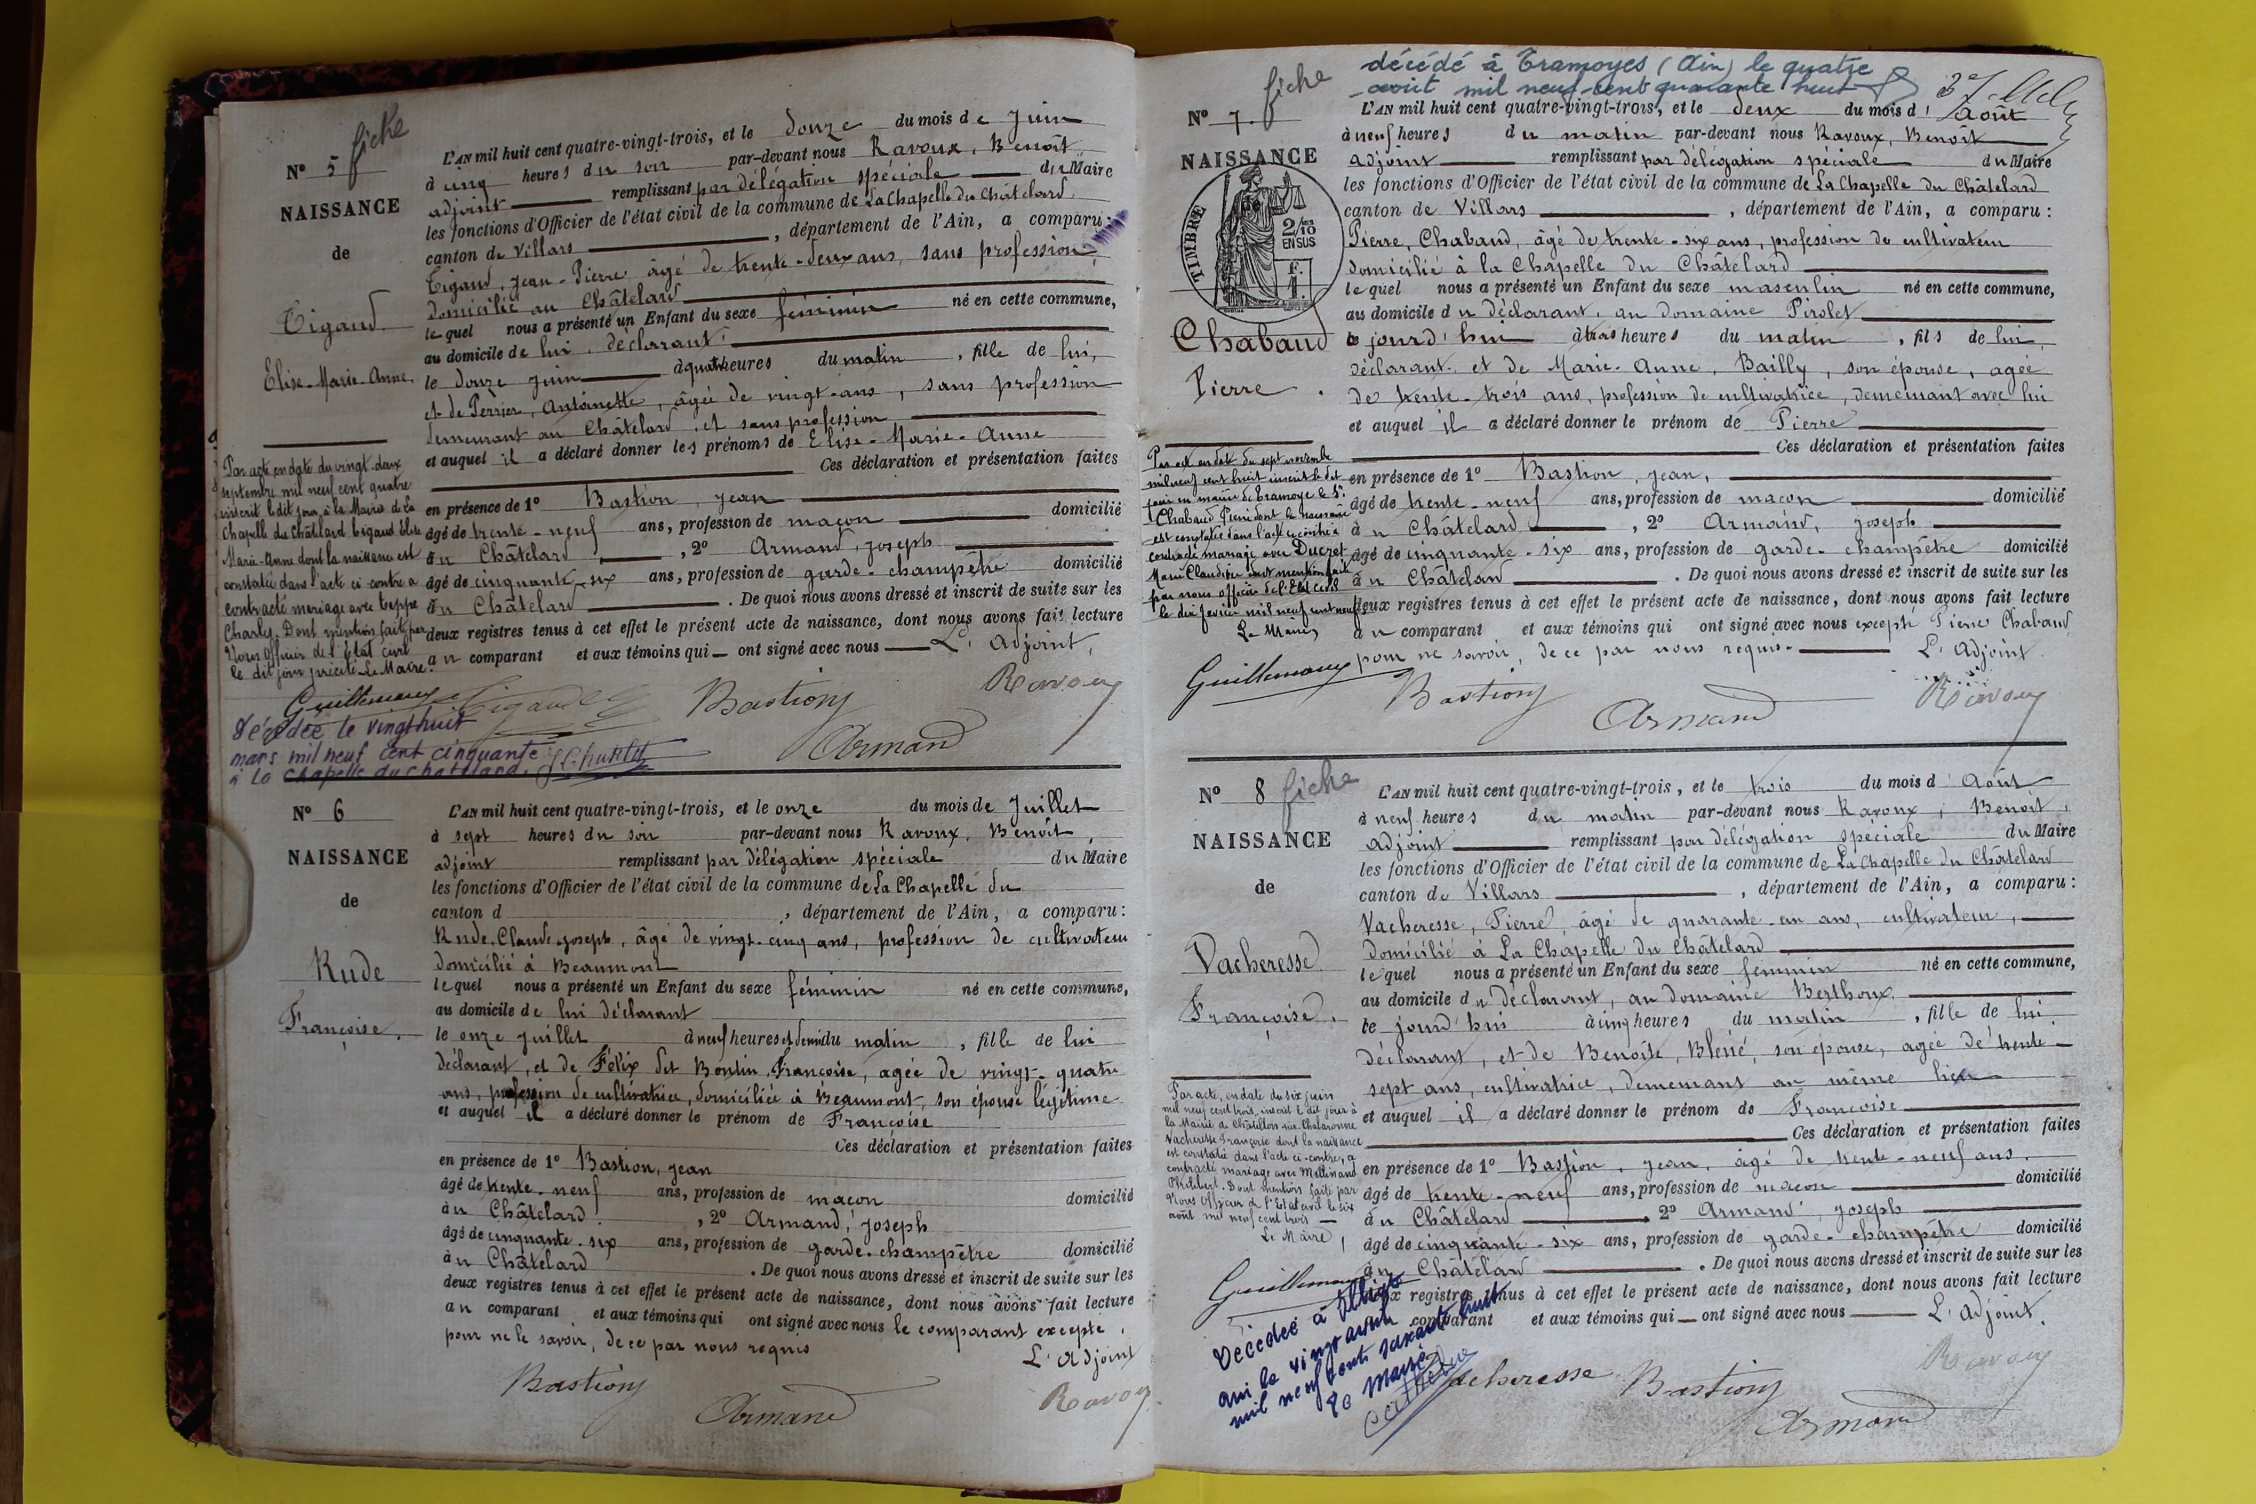 fiche
N° 5
NAISSANCE
de
Tigaud
Elise-Marie-Anne.
L'AN mil huit cent quatre-vingt-trois, et le douze du mois de Juin
à cinq heures du soir par-devant nous Ravoux, Benoît,
adjoint remplissant par délégation spéciale du Maire
les fonctions d'Officier de l'état civil de la commune de La Chapelle du Châtelard
canton de Villars , département de l'Ain, a comparu :
Tigaud, Jean-Pierre âgé de trente-deux ans, sans profession,
domicilié au Châtelard
lequel nous a présenté un Enfant du sexe féminin né en cette commune,
au domicile de lui, déclarant,
le douze juin à quatre heures du matin , fille de lui,
et de Perrier, Antoinette, âgée de vingt-ans, sans profession
demeurant au Châtelard, et sans profession
et auquel il a déclaré donner les prénoms de Elise-Marie-Anne
Ces déclaration et présentation faites
en présence de 1° Bastion, Jean
âgé de trente-neuf ans, profession de maçon domicilié
au Châtelard , 2° Armand, Joseph
âgé de cinquante-six ans, profession de garde-champêtre domicilié
au Châtelard . De quoi nous avons dressé et inscrit de suite sur les
deux registres tenus à cet effet le présent acte de naissance, dont nous avons fait lecture
au comparant et aux témoins qui ont signé avec nous L'Adjoint,
Par acte en date du vingt-deux
septembre mil neuf cent quatre
inscrit le dit jour, à la Mairie de La
Chapelle du Châtelard Tigaud Elise
Marie-Anne dont la naissance est
constatée dans l'acte ci-contre a
contracté mariage avec Teppe
Charly. Dont mention faite par
Nous Officier de l'Etat civil
le dit jour précité. Le Maire.
Guillemaux Tigaud Bastion Ravoux
Armand
Décédée le vingt huit
mars mil neuf cent cinquante
à La Chapelle du Chatelard.
N° 6
NAISSANCE
de
Rude
Françoise.
L'AN mil huit cent quatre-vingt-trois, et le onze du mois de Juillet
à sept heures du soir par-devant nous Ravoux, Benoît,
adjoint remplissant par délégation spéciale du Maire
les fonctions d'Officier de l'état civil de la commune de La Chapelle du
canton d , département de l'Ain, a comparu :
Rude, Claude Joseph, âgé de vingt-cinq ans, profession de cultivateur
domicilié à Beaumont
lequel nous a présenté un Enfant du sexe féminin né en cette commune,
au domicile de lui déclarant
le onze juillet à neuf heures et demi du matin , fille de lui
déclarant, et de Félix dit Bontin, Françoise, agée de vingt-quatre
ans, profession de cultivatrice, domiciliée à Beaumont, son épouse légitime
et auquel il a déclaré donner le prénom de Françoise
Ces déclaration et présentation faites
en présence de 1° Bastion, Jean
âgé de trente-neuf ans, profession de maçon domicilié
au Châtelard , 2° Armand, Joseph
âgé de cinquante-six ans, profession de garde-champêtre domicilié
au Châtelard . De quoi nous avons dressé et inscrit de suite sur les
deux registres tenus à cet effet le présent acte de naissance, dont nous avons fait lecture
au comparant et aux témoins qui ont signé avec nous le comparant excepté,
pour ne le savoir, de ce par nous requis
L'Adjoint
Bastion Armand Ravoux
décédé à Tramoyes (Ain) le quatre
août mil neuf cent quarante huit
fiche
N° 7.
NAISSANCE
TIMBRE
2/10
EN SUS
F.
1.
Chabaud
Pierre.
L'AN mil huit cent quatre-vingt-trois, et le deux du mois d'Août
à neuf heures du matin par-devant nous Ravoux, Benoît
adjoint remplissant par délégation spéciale du Maire
les fonctions d'Officier de l'état civil de la commune de La Chapelle du Châtelard
canton de Villars , département de l'Ain, a comparu :
Pierre, Chabaud, âgé de trente-six ans, profession de cultivateur
domicilié à la Chapelle du Châtelard
lequel nous a présenté un Enfant du sexe masculin né en cette commune,
au domicile du déclarant, au domaine Pirolet
ce jourd'hui à trois heures du matin , fils de lui,
déclarant, et de Marie-Anne, Bailly, son épouse, agée
de trente-trois ans, profession de cultivatrice, demeurant avec lui
et auquel il a déclaré donner le prénom de Pierre
Ces déclaration et présentation faites
en présence de 1° Bastion, Jean,
âgé de trente-neuf ans, profession de maçon domicilié
au Châtelard , 2° Armand, Joseph
âgé de cinquante-six ans, profession de garde-champêtre domicilié
au Châtelard . De quoi nous avons dressé et inscrit de suite sur les
deux registres tenus à cet effet le présent acte de naissance, dont nous avons fait lecture
au comparant et aux témoins qui ont signé avec nous excepté Pierre Chabaud
pour ne savoir, de ce par nous requis. L'Adjoint
Par acte en date du sept novembre
mil neuf cent huit inscrit le dit
jour en mairie de Tramoye le Sr.
Chabaud Pierre dont la naissance
est constatée dans l'acte ci-contre a
contracté mariage avec Ducret
Marie Claudine dont mention fait
par nous officier de l'Etat Civil
le dix février mil neuf cent neuf
Le Maire,
Guillemaux Bastion Armand Ravoux
N° 8 fiche
NAISSANCE
de
Vacheresse
Françoise.
L'AN mil huit cent quatre-vingt-trois, et le trois du mois d'Août
à neuf heures du matin par-devant nous Ravoux, Benoît,
adjoint remplissant par délégation spéciale du Maire
les fonctions d'Officier de l'état civil de la commune de La Chapelle du Châtelard
canton de Villars , département de l'Ain, a comparu :
Vacheresse, Pierre, âgé de quarante-un ans, cultivateur,
domicilié à La Chapelle du Châtelard
lequel nous a présenté un Enfant du sexe féminin né en cette commune,
au domicile du déclarant, au domaine Berthoux
ce jourd'hui à cinq heures du matin , fille de lui
déclarant, et de Benoîte, Bléné, son épouse, agée de trente-
sept ans, cultivatrice, demeurant au même lieu
et auquel il a déclaré donner le prénom de Françoise
Ces déclaration et présentation faites
en présence de 1° Bastion, Jean, âgé de trente-neuf ans.
âgé de trente-neuf ans, profession de maçon domicilié
au Châtelard 2° Armand, Joseph
âgé de cinquante-six ans, profession de garde-champêtre domicilié
au Châtelard . De quoi nous avons dressé et inscrit de suite sur les
deux registres tenus à cet effet le présent acte de naissance, dont nous avons fait lecture
comparant et aux témoins qui ont signé avec nous L'Adjoint.
Par acte, en date du six juin
mil neuf cent trois, inscrit le dit jour à
la Mairie de Châtillon-sur-Chalaronne
Vacheresse Françoise dont la naissance
est constatée dans l'acte ci-contre, a
contracté mariage avec Mettinand
Philibert. Dont mention faite par
Nous Officier de l'Etat civil le six
août mil neuf cent trois
Le Maire,
Guillemaux
Décédée à
le vingt avril
mil neuf cent soixante huit
Le Maire
Vacheresse Bastion Ravoux
Armand